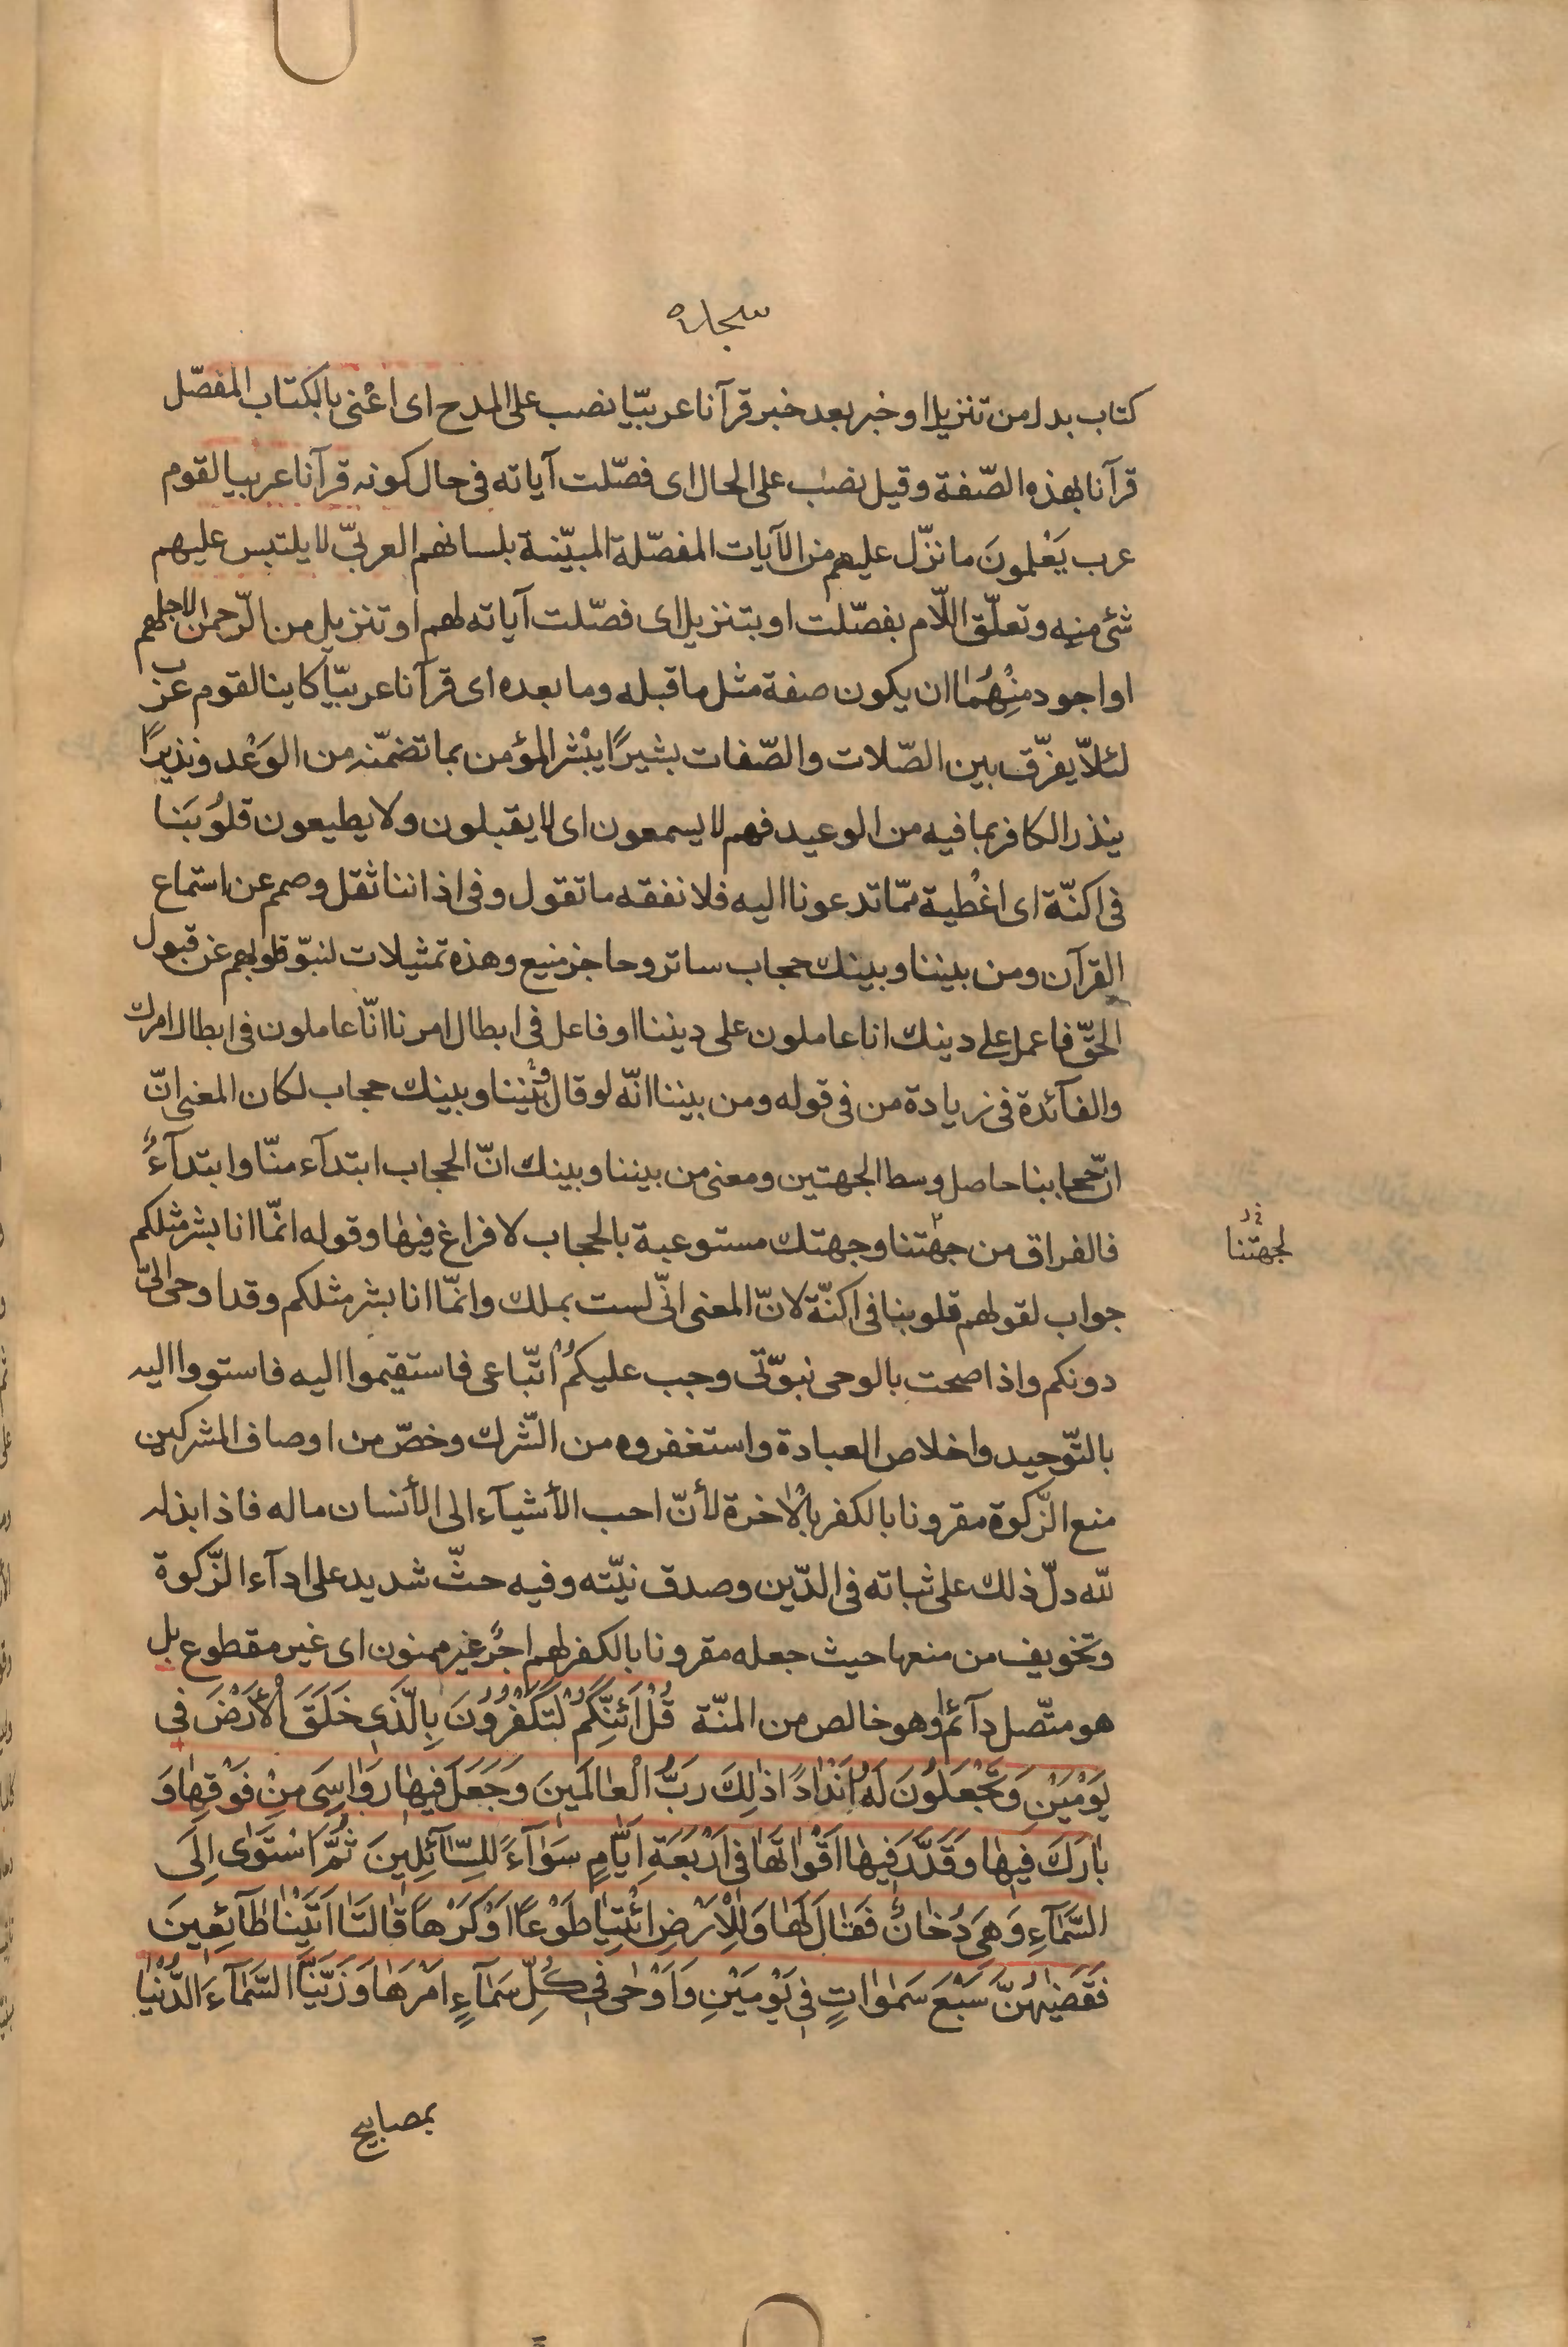 سجده
كتاب بدل من تنزيل او خبر بعد خبر قرآنا عربيّا نصب على المدح اى اعْنى بالكتاب المفصّل
قرآنا بهذه الصّفة وقيل نصب على الحال اى فصّلت آياته فى حال كونه قرآنا عربيا لقوم
عرب يَعْلمونَ ما نزّل عليهم من الآيات المفصّلة المبيّنة بلسانهم العربىّ لا يلتبس عليهم
شئ منه وتعلّق اللّام بفصّلت او بتنزيل اى فصّلت آياته لهم او تنزيل من الرّحمن لاجلهم
او اجود منْهُمٰا ان يكون صفة مثل ما قبله وما بعده اى قرآنا عربيّا كاينا لقوم عرب
لئلاّ يفرّق بين الصّلات والصّفات بشيرًا يبْشر المؤمن بما تضمّنه من الوَعْد ونذيرًا
ينذر الكافر بما فيه من الوعيد فهم لا يسمعون اى لا يقبلون ولا يطيعون قلوُبَنا
فى اكنّة اى اغْطية ممّا تدعونا اليه فلا نفقه ما تقول وفى اذاننا ثقل وصمم عن استماع
القرآن ومن بيننا وبينك حجاب ساتر وحاجز منيع وهذه تمثيلات لنبوّ قلوبهم عن قبول
الحقّ فاعمل على دينك انا عاملون على ديننا او فاعل فى ابطال امرنا انّا عاملون فى ابطال امرك
والفآئدة فى زيادة من فى قوله ومن بيننا انّه لو قال وبيننا وبينك حجاب لكان المعنى انّ
انّ حجابنا حاصل وسط الجهتين ومعنى من بيننا وبينك انّ الحجاب ابتدآء منّا وابتدآءً
فالفراق من جهتنا وجهتك مستوعبة بالحجاب لا فراغ فيهٰا وقوله انّما انا بشر مثلكم
لجهتنا
جواب لقولهم قلوبنا فى اكنّة لانّ المعنى انّى لست بملك وانّمٰا انا بشر مثلكم وقد اوحى الىّ
دونكم واذا صحت بالوحى نبوّتى وجب عليكمْ اتّباعى فاستقيموا اليه فاستووا اليه
بالتّوحيد واخلاص العبادة واستغفروه من الشّرك وخصّ من اوصاف المشركين
منع الزّكوة مقرونا بالكفر بالاخرة لأنّ احب الأشيآء الى الأنسان ماله فاذا بذله
لله دلّ ذلك على ثباته فى الدّين وصدق نيّته وفيه حثّ شديد على ادآء الزّكوة
وتخويف من منعها حيث جعله مقرونا بالكفر لهم اجرٌ غير ممنون اى غير مقطوع بل
هو متّصل دآئم وهو خالص من المنّة قُلْ اَئِنَّكُمْ لَتَكْفُرُونَ بِالَّذى خَلَقَ الْأَرْضَ فى
يَوْمَيْنِ وَتَجْعَلوُنَ لَهُ اَنْدٰادًا ذٰلِكَ رَبُّ الْعٰالَمينَ وَجَعَلَ فيهٰا رَوٰاسِىَ مِنْ فَوْقِهٰا وَ
بٰارَكَ فيهٰا وَقَدَّرَ فيهٰا اَقْوٰاتَهٰا فى اَرْبَعَةِ اَيّٰامٍ سَوٰآءً لِلسّٰآئِلينَ ثُمَّ اسْتَوٰى اِلَى
السَّمٰآءِ وَهىَ دُخٰانٌ فَقٰالَ لَهٰا وَلِلْاَرْضِ ائْتِيٰا طَوْعًا اَوْ كَرْهًا قٰالَتٰا اَتَيْنٰا طٰآئِعينَ
فَقَضٰيهُنَّ سَبْعَ سَمٰوٰاتٍ فى يَوْمَيْنِ وَاَوْحٰى فى كُلِّ سَمٰآءٍ اَمْرَهٰا وَزَيَّنَّا السَّمٰآءَ الدُّنْيٰا
بمصابيح